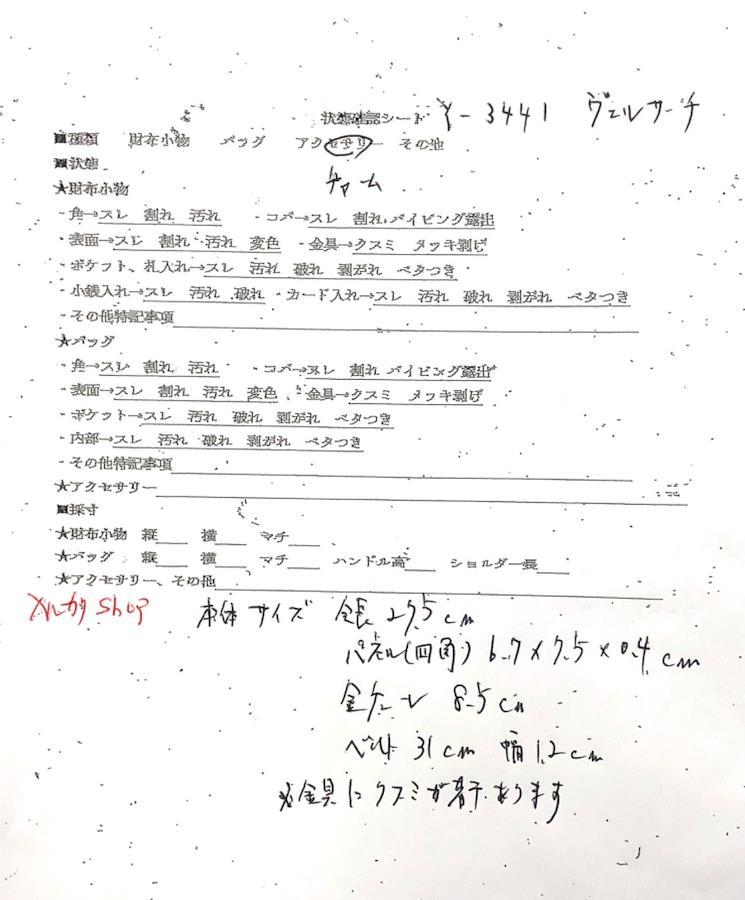 状態確認シード Y-3441 ヴェルサーチ
■種類 財布小物 バッグ アクセサリー その他
チャーム
■状態
★財布小物
・角→スレ 割れ 汚れ ・コバ→スレ 割れ パイピング露出
・表面→スレ 割れ 汚れ 変色 ・金具→クスミ メッキ剥げ
・ポケット、札入れ→スレ 汚れ 破れ 剥がれ ベタつき
・小銭入れ→スレ 汚れ 破れ ・カード入れ→スレ 汚れ 破れ 剥がれ ベタつき
・その他特記事項
★バッグ
・角→スレ 割れ 汚れ ・コバ→スレ 割れ パイピング露出
・表面→スレ 割れ 汚れ 変色 ・金具→クスミ メッキ剥げ
・ポケット→スレ 汚れ 破れ 剥がれ ベタつき
・内部→スレ 汚れ 破れ 剥がれ ベタつき
・その他特記事項
★アクセサリー
■採寸
★財布小物 縦 横 マチ
★バッグ 縦 横 マチ ハンドル高 ショルダー長
★アクセサリー、その他
メルカリshop 本体サイズ 全長 27.5cm
パネル(四角) 6.7×7.5×0.4cm
金チェーン 8.5cm
ベルト 31cm 幅1.2cm
※金具にクスミが若干あります